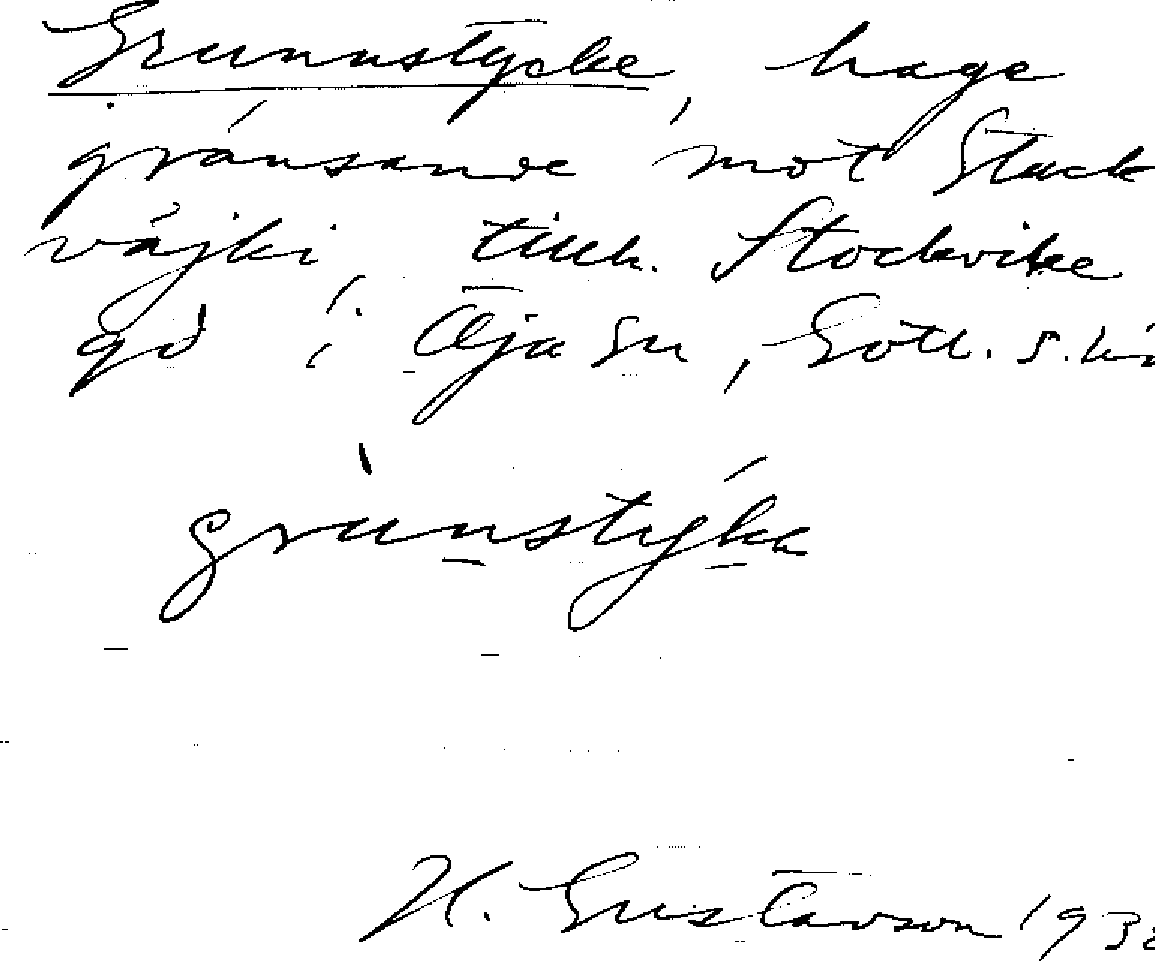 Grunnstycke, hage
gränsande mot Stuck
våjki, tillh. Stockvike
gd i Öja sn, Gotl. s. 
grunstyka
H. Gustavson 193